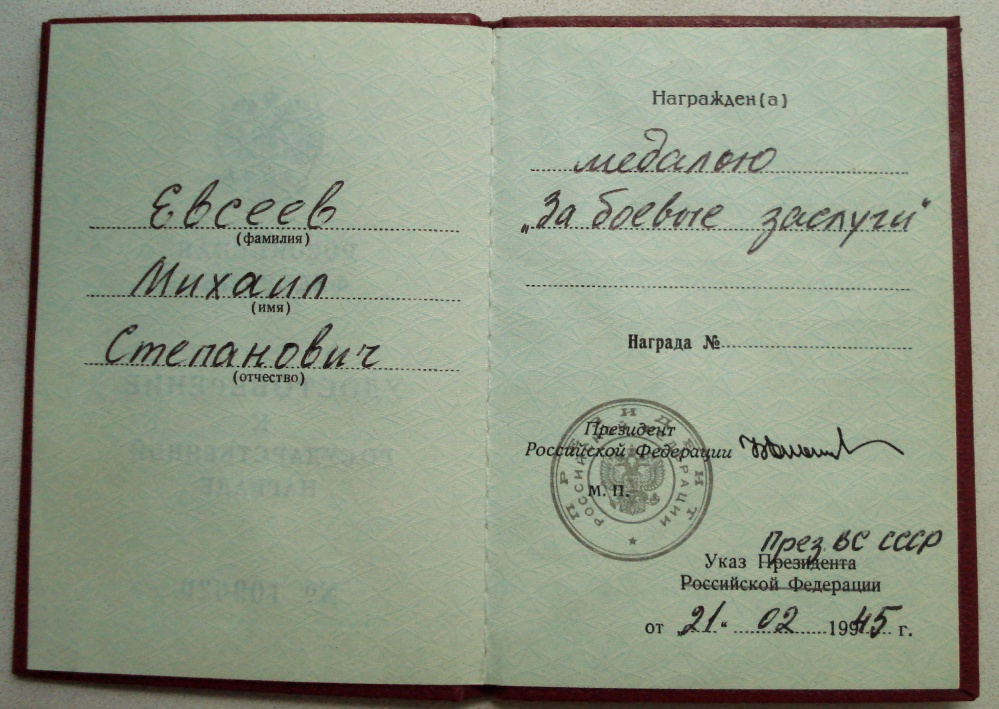 Евсеев
(фамилия)
Михаил
(имя)
Степанович
(отчество)
Награжден(а)
медалью
„За боевые заслуги“
Награда №
Президент
Российской Федерации
М. П.
ПРЕЗИДЕНТ
РОССИЙСКОЙ ФЕДЕРАЦИИ
През ВС СССР
Указ Президента
Российской Федерации
от „21“ 02 1945 г.